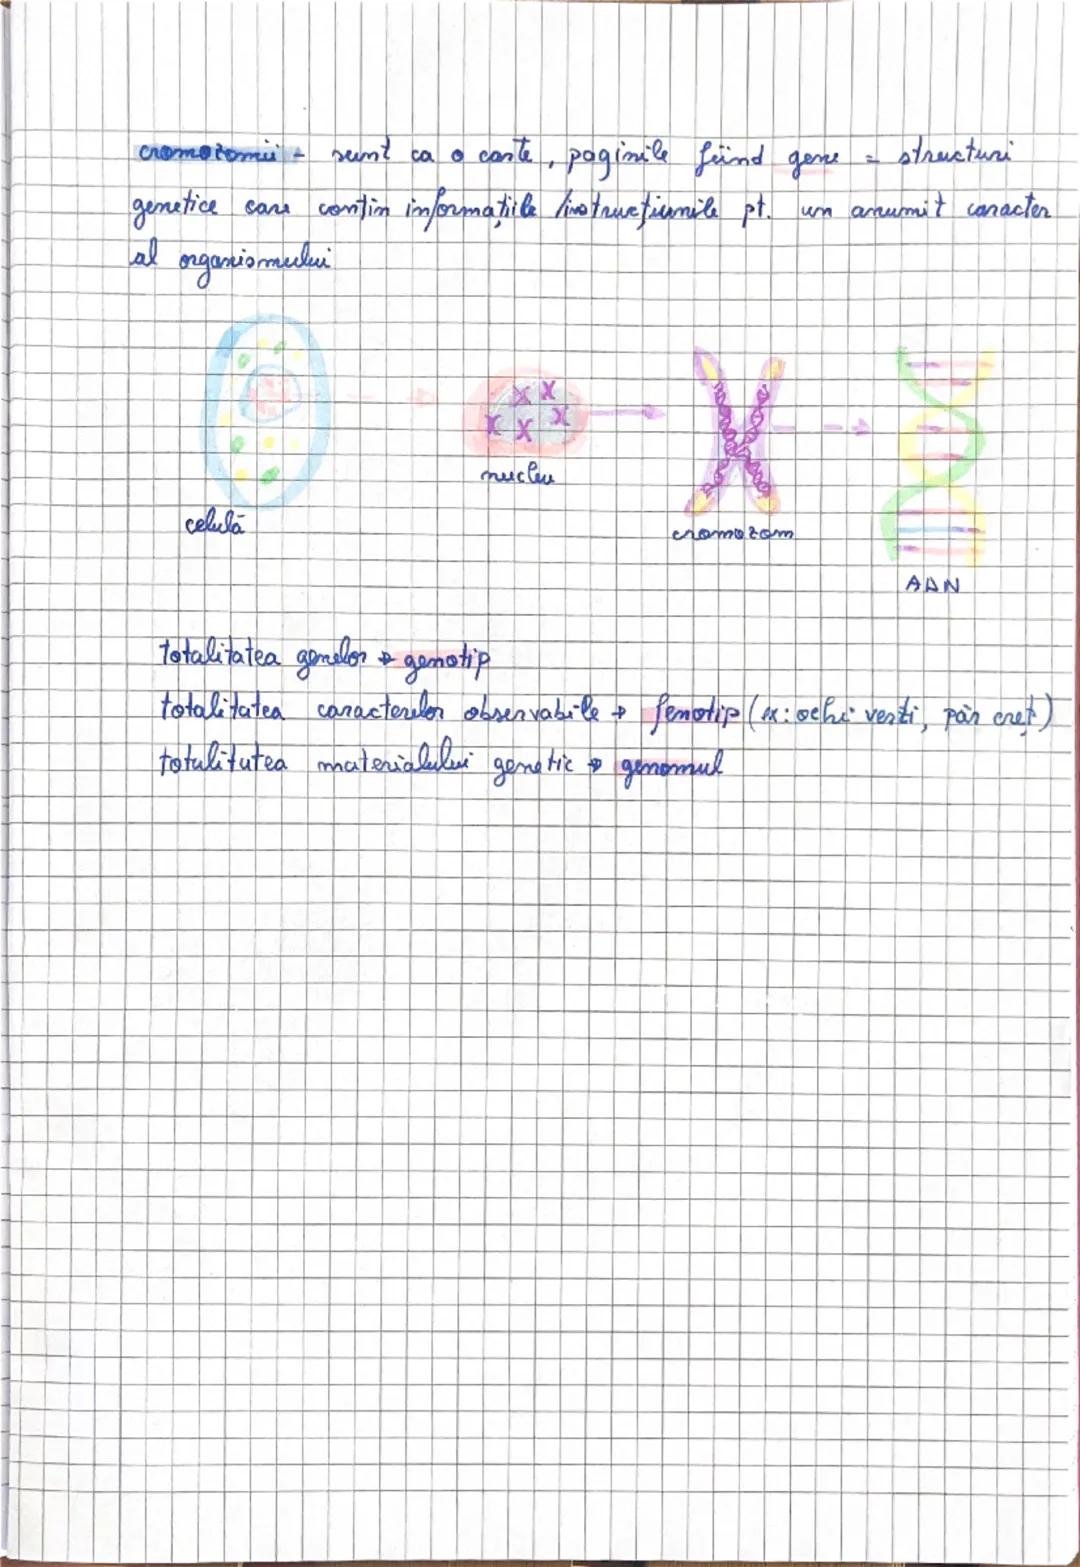 cromozomii - sunt ca o carte, paginile fiind gene = structuri
genetice care conțin informațiile /instrucțiunile pt. un anumit caracter
al organismului
celulă
nucleu
cromozom
ADN
totalitatea genelor → genotip
totalitatea caracterelor observabile → fenotip (ex: ochi verzi, păr creț)
totalitatea materialului genetic → genomul